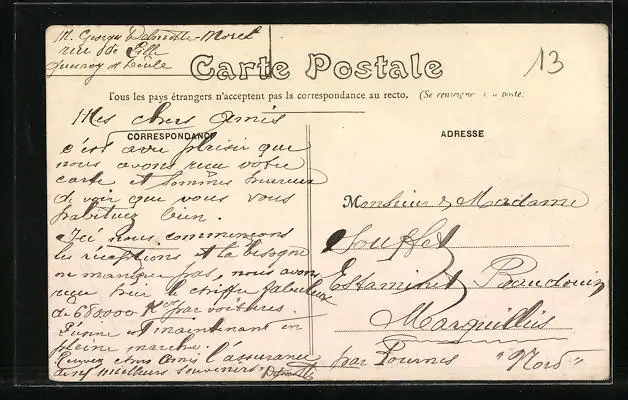 M. Georges Delmotte-Morel
rue de Lille
Quesnoy s/ Deûle
13
Carte Postale
Tous les pays étrangers n'acceptent pas la correspondance au recto. (Se renseigner à la poste
CORRESPONDANCE
ADRESSE
Mes chers Amis
c'est avec plaisir que
nous avons reçu votre
carte et sommes heureux
de voir que vous vous
habituez bien.
Ici nous commençons
les réceptions et la besogne
ne manque pas, nous avons
reçu hier le chiffre fabuleux
de 680000 K par voitures.
L'usine est maintenant en
pleine marche.
Recevez chers Amis l'assurance
de nos meilleurs souvenirs Delmotte
Monsieur & Madame
Estaminet Baudouin
Marquillies
par Fournes "Nord"